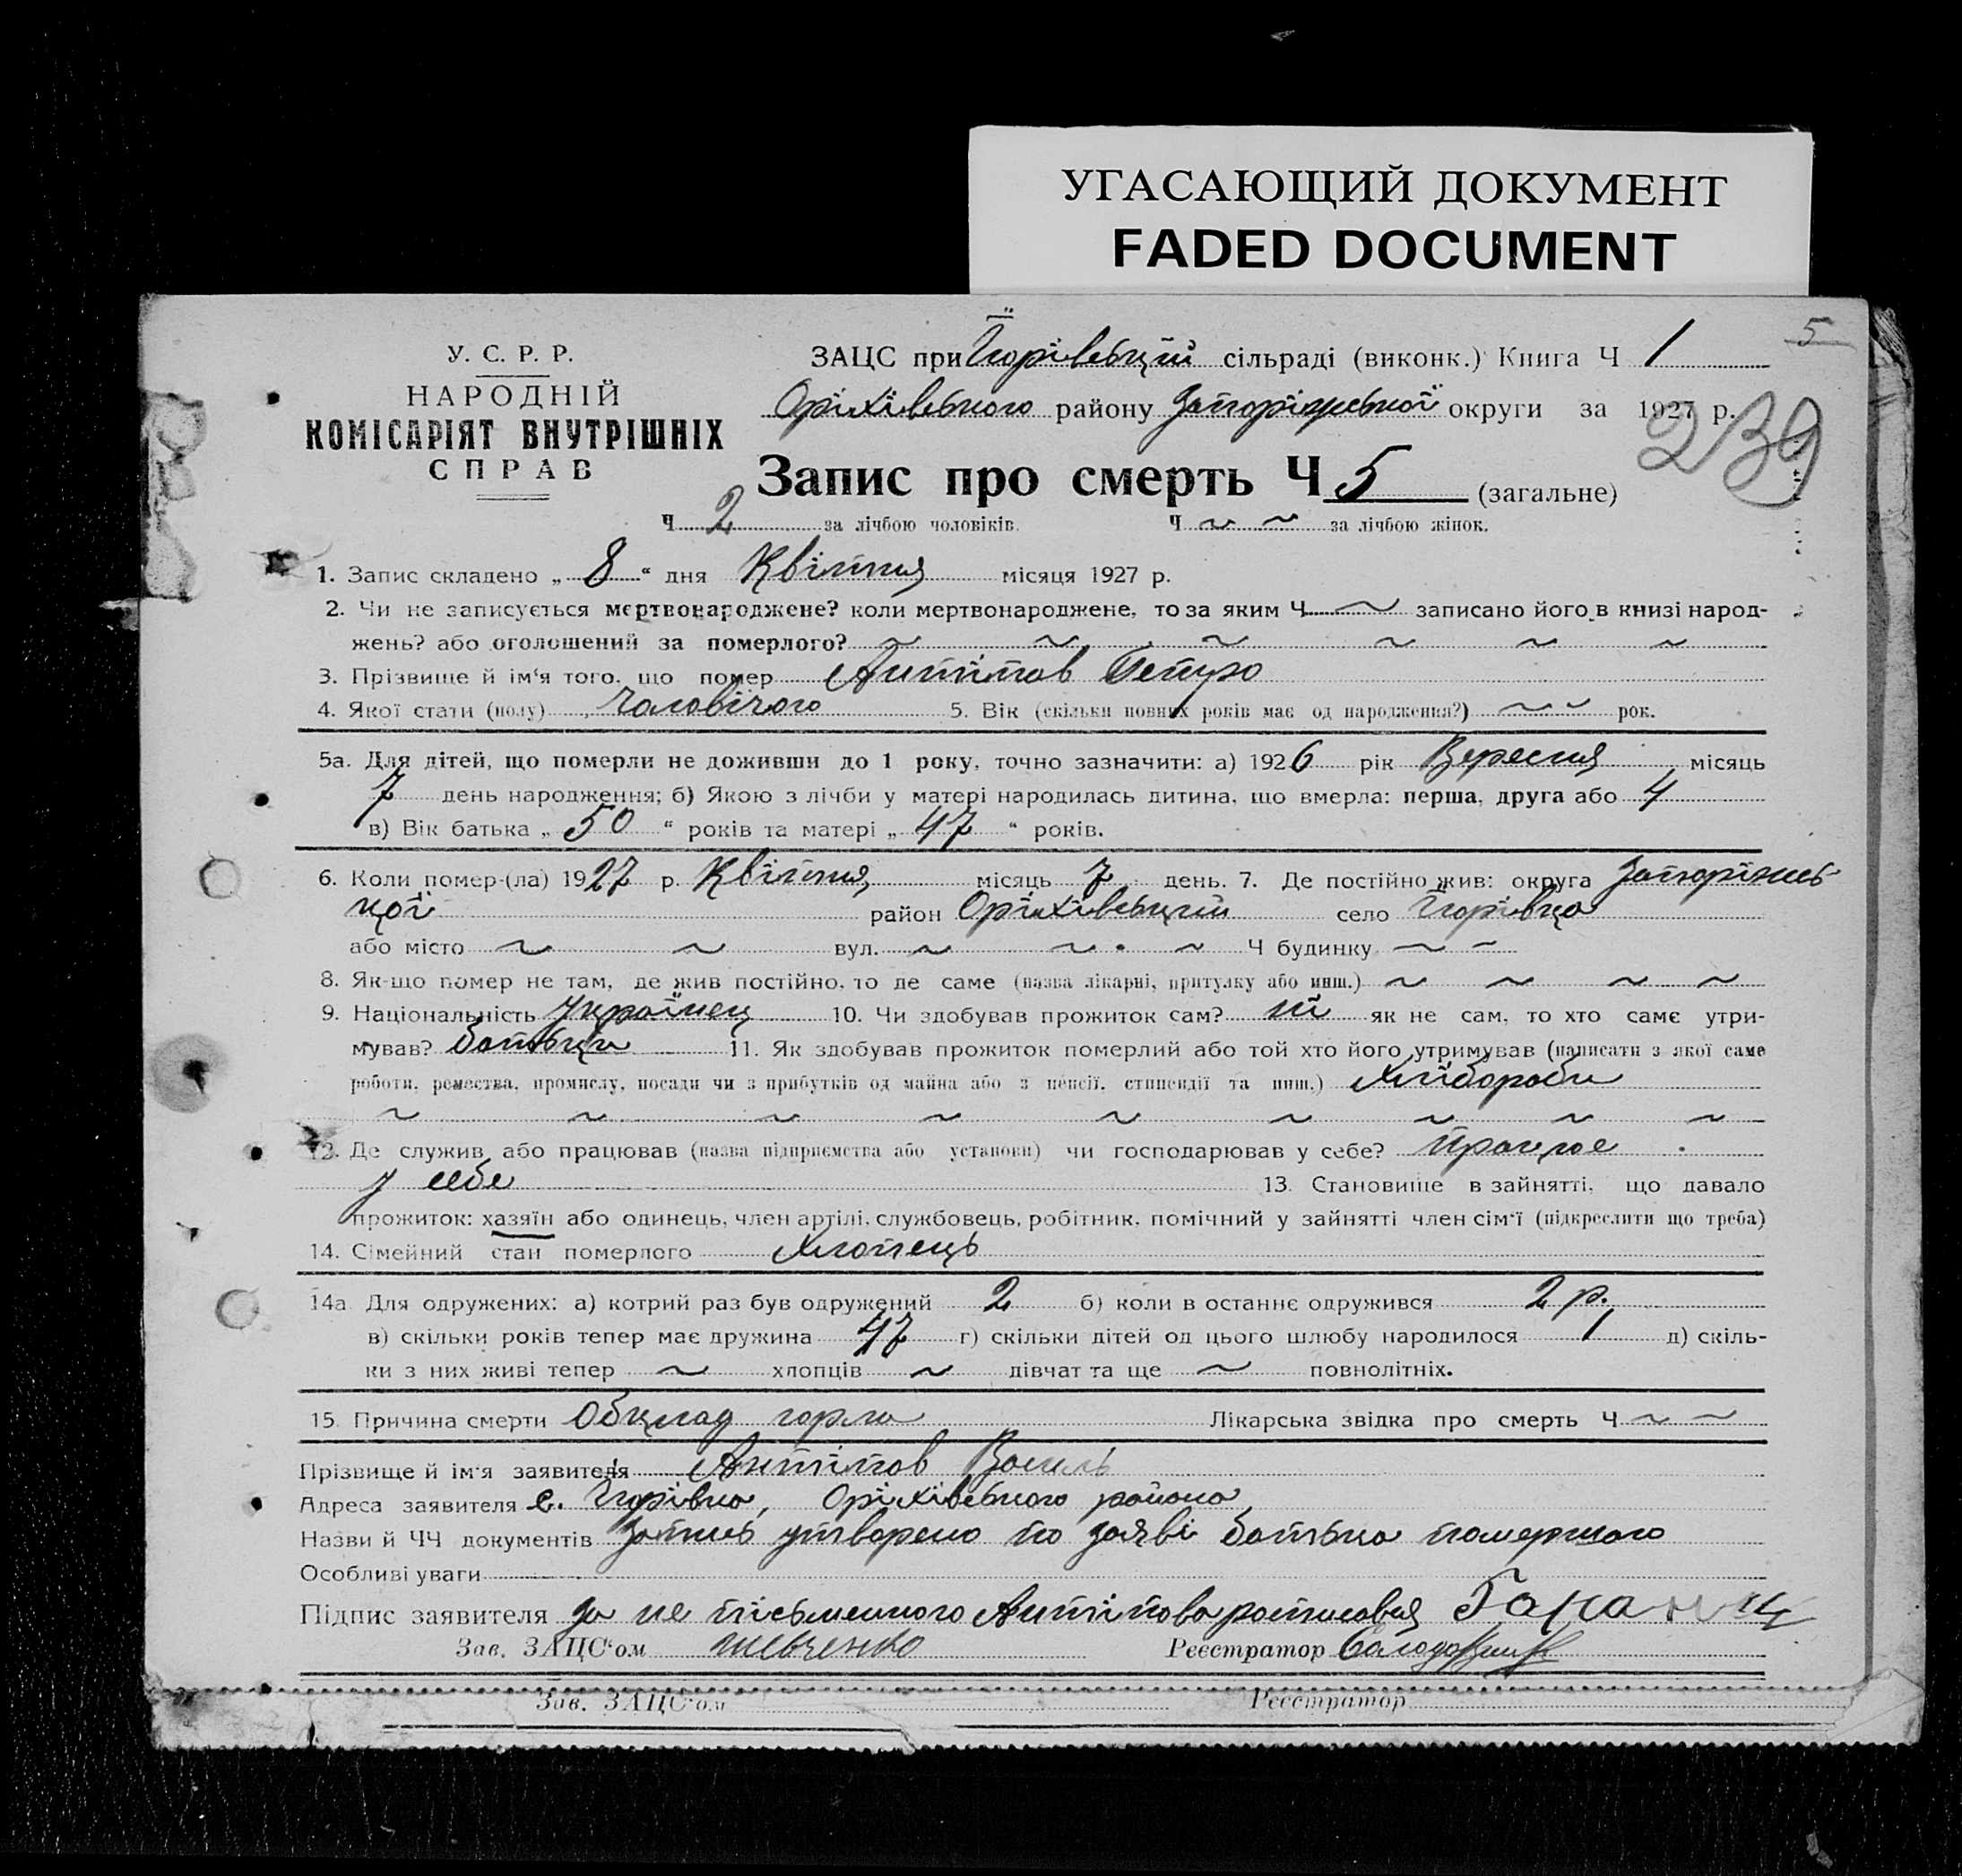 УГАСАЮЩИЙ ДОКУМЕНТ
FADED DOCUMENT
5
У. С. Р. Р.
НАРОДНІЙ
КОМІСАРІЯТ ВНУТРІШНІХ
СПРАВ
ЗАЦС при Їгорівецкій сільраді (виконк.) Книга Ч 1
Оріхівського району Запоріжської округи за 1927 р.
239
Запис про смерть Ч 5 (загальне)
Ч 2 за лічбою чоловіків. Ч ~ ~ за лічбою жінок.
1. Запис складено „ 8 “ дня Квітня місяця 1927 р.
2. Чи не записується мертвонароджене? коли мертвонароджене, то за яким Ч ~ записано його в книзі народ-
жень? або оголошений за померлого? ~ ~ ~ ~ ~ ~
3. Прізвище й ім‘я того, що помер Антіпов Петро
4. Якої стати (полу) чоловічого 5. Вік (скільки повних років має од народження?) ~ ~ рок.
5а. Для дітей, що померли не доживши до 1 року, точно зазначити: а) 1926 рік Вересня місяць
7 день народження; б) Якою з лічби у матері народилась дитина, що вмерла: перша, друга або 4
в) Вік батька „ 50 “ років та матері „ 47 “ років.
6. Коли помер-(ла) 1927 р. Квітня місяць 7 день. 7. Де постійно жив: округа Запоріжсь-
кої район Оріхівецький село Їгорівка
або місто ~ ~ вул. ~ ~ ~ Ч будинку ~ ~
8. Як-що помер не там, де жив постійно, то де саме (назва лікарні, притулку або инш.) ~ ~ ~ ~
9. Національність Українец 10. Чи здобував прожиток сам? ні як не сам, то хто саме утри-
мував? батьки 11. Як здобував прожиток померлий або той хто його утримував (написати з якої саме
роботи, ремества, промислу, посади чи з прибутків од майна або з пенсії, стипендії та инш.) Хлібороби
~ ~ ~ ~ ~ ~ ~ ~ ~
12. Де служив або працював (назва підприємства або установи) чи господарював у себе? працює
у себе 13. Становище в зайнятті, що давало
прожиток: хазяїн або одинець, член артілі, службовець, робітник, помічний у зайнятті член сім‘ї (підкреслити що треба)
14. Сімейний стан померлого Хлопець
14а. Для одружених: а) котрий раз був одружений 2 б) коли в останнє одружився 2 р.
в) скільки років тепер має дружина 47 г) скільки дітей од цього шлюбу народилося 1 д) скіль-
ки з них живі тепер ~ хлопців ~ дівчат та ще ~ повнолітніх.
15. Причина смерти Обклад горла Лікарська звідка про смерть Ч ~ ~
Прізвище й ім‘я заявителя Антіпов Василь
Адреса заявителя с. Їгорівка, Оріхівського района
Назви й ЧЧ документів запись утворено по заяві батька помершого
Особливі уваги
Підпис заявителя за не письменного Антіпова росписався
Зав. ЗАЦС‘ом Шевченко Реєстратор
Зав. ЗАЦС‘ом Реєстратор